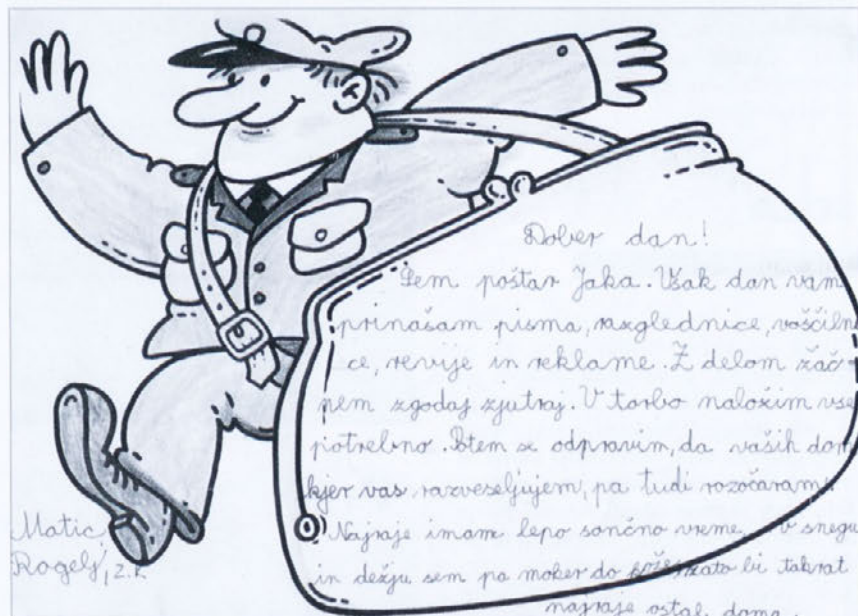 Dober dan!
Sem poštar Jaka. Vsak dan vam
prinašam pisma, razglednice, voščilni
ce, revije in reklame. Z delom zač-
nem zgodaj zjutraj. V torbo naložim vse
potrebno. Potem se odpravim, da vaših dom
kjer vas razveseljujem, pa tudi razočaram.
Najraje imam lepo sončno vreme, v snegu
in dežju sem pa moker do zato bi takrat
najraje ostal doma.
Matic
Rogelj, 2.r